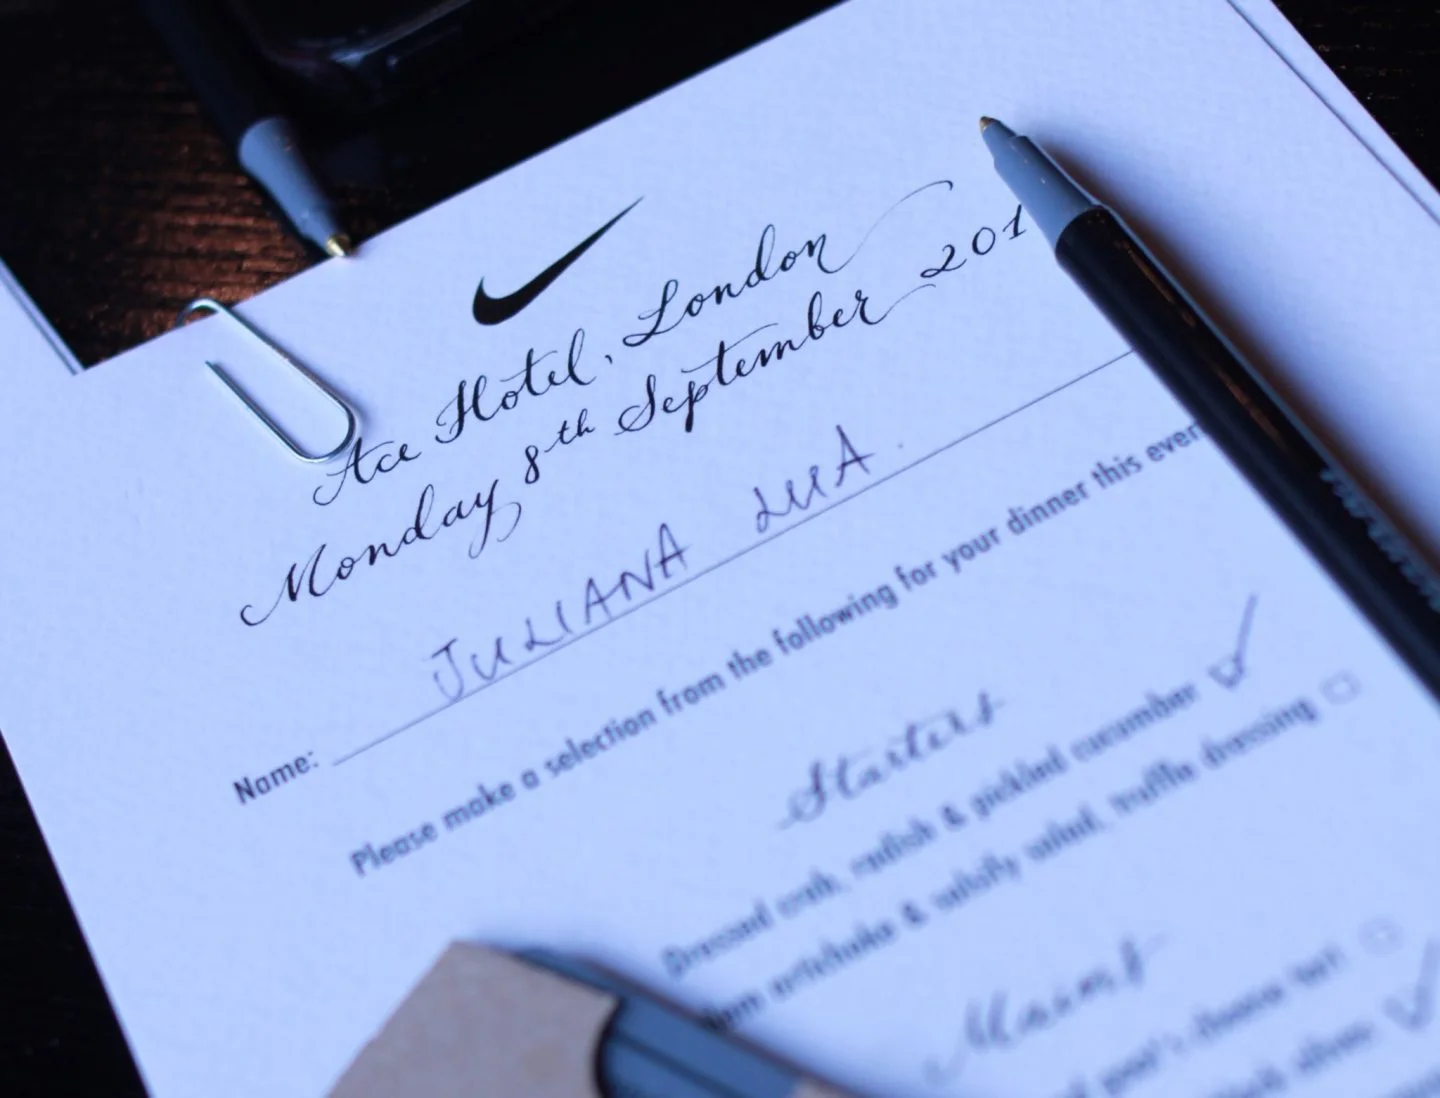 Ace Hotel, London
Monday 8th September 201
Name: JULIANA LUA.
Please make a selection from the following for your dinner this even
Starters
Dressed crab, radish & pickled cucumber
artichoke & salsify salad, truffle dressing
Mains
goat's cheese